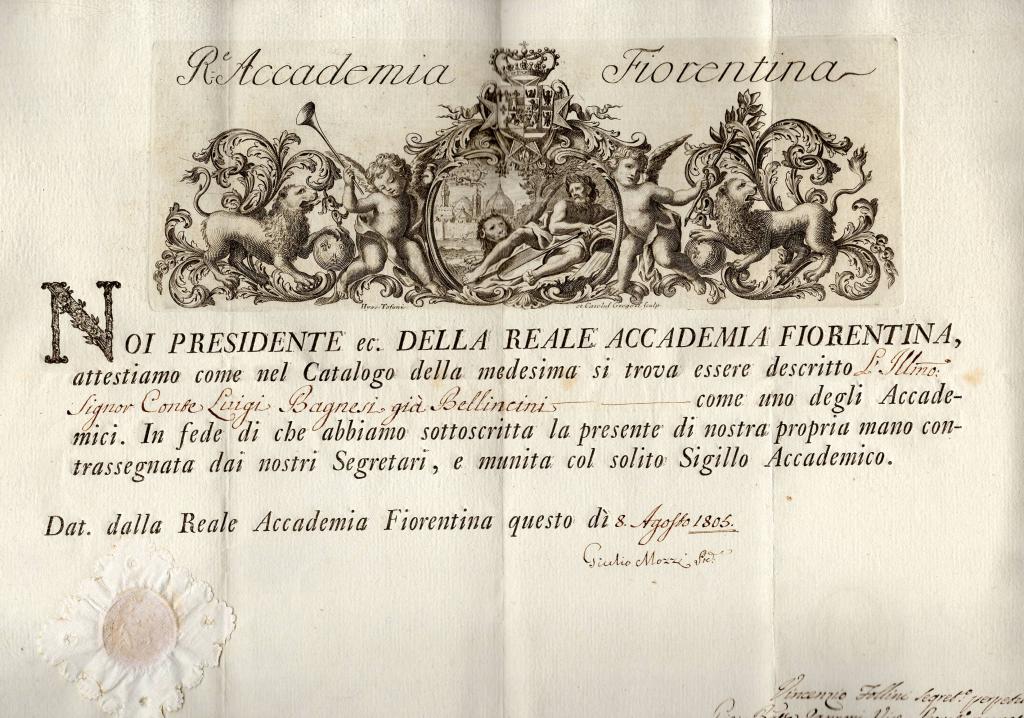 R.e Accademia Fiorentina
et Carolus Gregori Sculp.
NOI PRESIDENTE ec. DELLA REALE ACCADEMIA FIORENTINA,
attestiamo come nel Catalogo della medesima si trova essere descritto L' Illmo:
Signor Conte Luigi Bagnesi già Bellincini come uno degli Accade-
mici. In fede di che abbiamo sottoscritta la presente di nostra propria mano con-
trassegnata dai nostri Segretari, e munita col solito Sigillo Accademico.
Dat. dalla Reale Accademia Fiorentina questo dì 8. Agosto 1805.
Giulio Mozzi
Vincenzio Follini Segret.o perpetuo